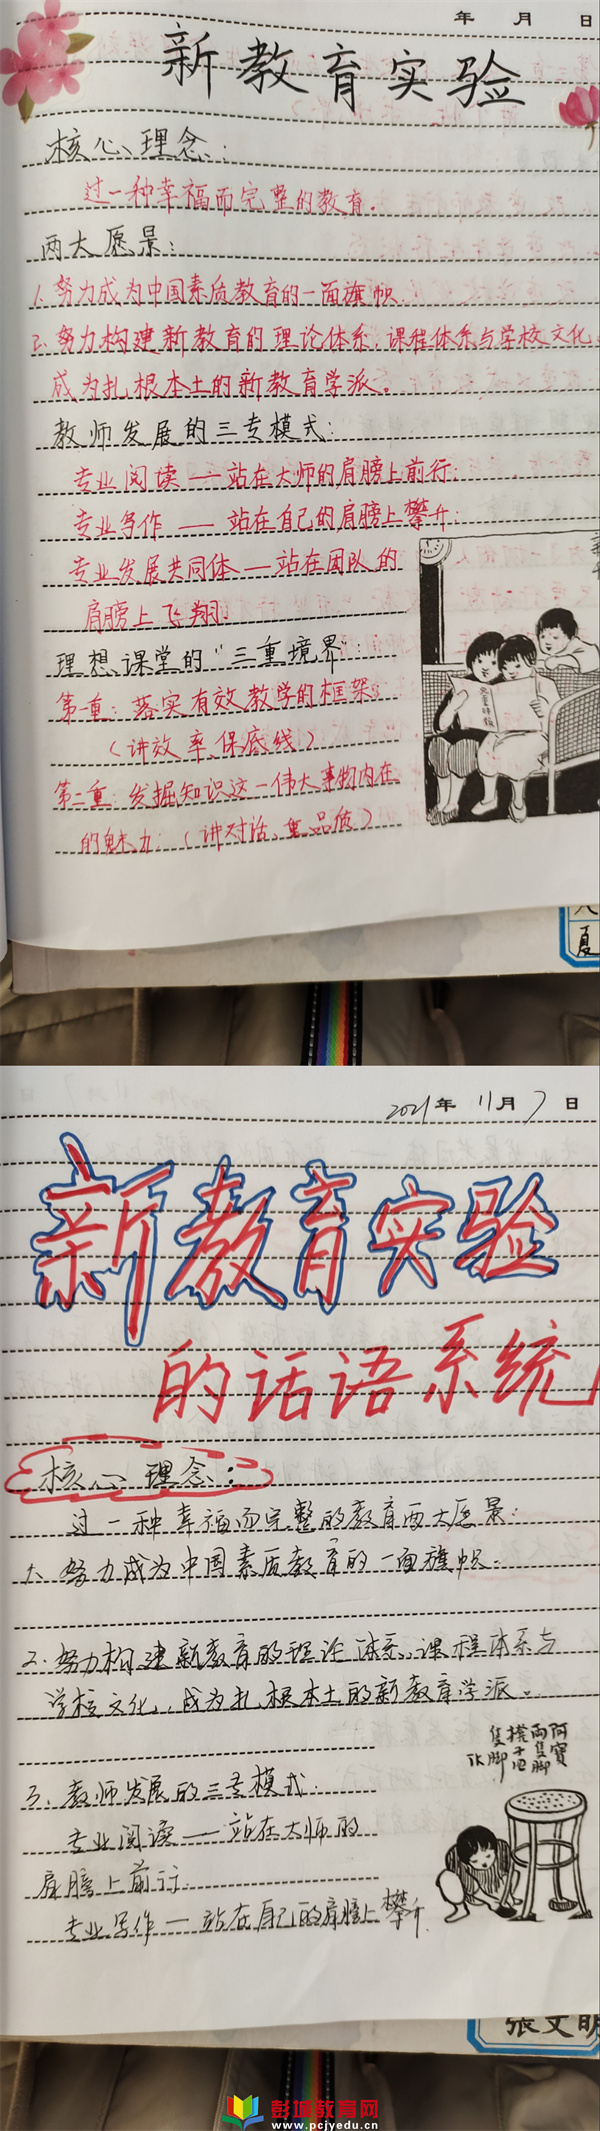 年 月 日
新教育实验
核心理念:
过一种幸福而完整的教育.
两大愿景:
1.努力成为中国素质教育的一面旗帜.
2.努力构建新教育的理论体系、课程体系与学校文化,
成为扎根本土的新教育学派。
教师发展的三专模式:
专业阅读——站在大师的肩膀上前行;
专业写作——站在自己的肩膀上攀升;
专业发展共同体—站在团队的
肩膀上飞翔.
理想课堂的"三重境界":
第一重:落实有效教学的框架。
(讲效率、保底线)
第二重:发掘知识这一伟大事物内在
的魅力;(讲对话、重品质)
夏
2021年 11月 7日
新教育实验
的话语系统
核心理念:
过一种幸福而完整的教育两大愿景:
1.努力成为中国素质教育的一面旗帜.
2.努力构建新教育的理论体系、课程体系与
学校文化,成为扎根本土的新教育学派。
阿寶兩隻脚
凳子四隻脚
3.教师发展的三专模式:
专业阅读——站在大师的
肩膀上前行.
专业写作—站在自己的肩膀上攀升.
張文明
彭城教育网
www.pcjyedu.cn